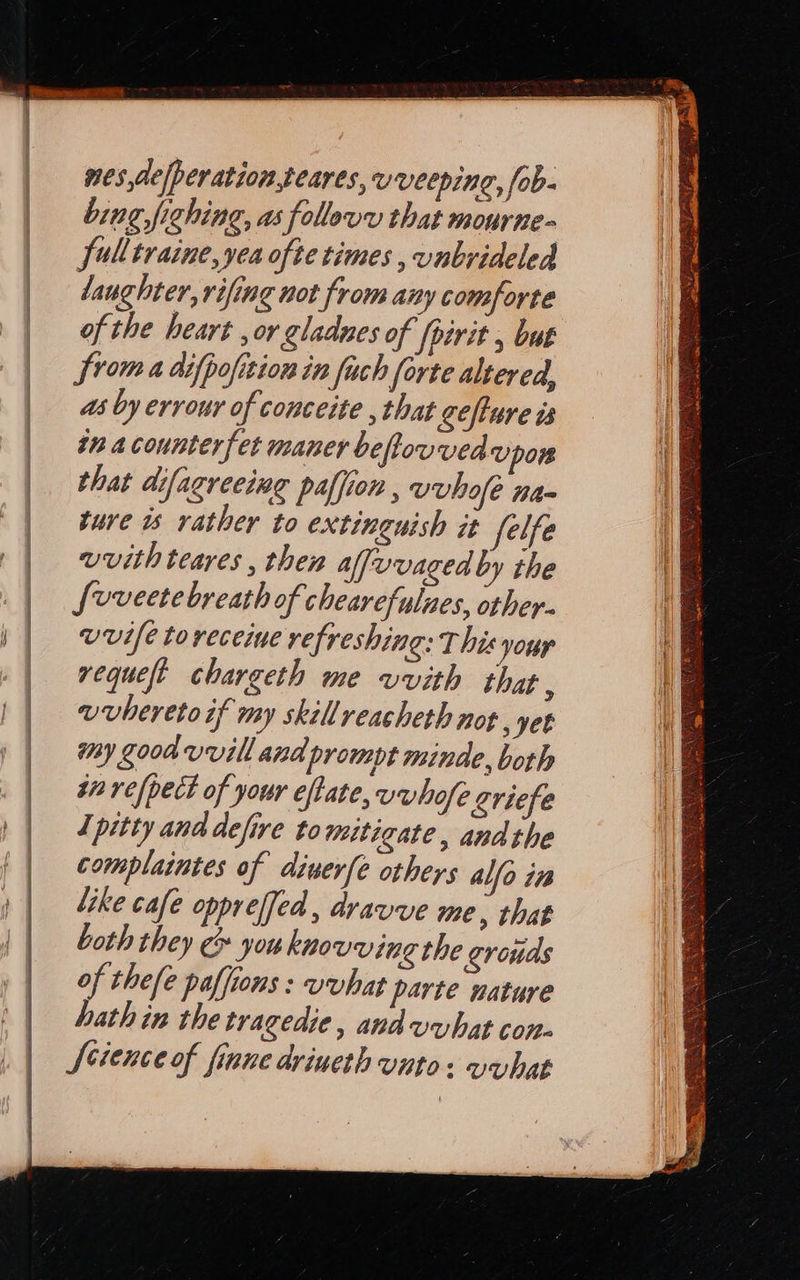 nes,deſperation,teares, vveeping, ſob-
bing,ſighing, as follovv that mourne-
full traine,yea oftetimes , vnbrideled
laughter,riſing not from any comforte
of the heart ,or gladnes of ſpirit , but
from a diſpoſition in ſuch ſorte altered,
as by errour of conceite , that geſture is
in a counterfet maner beſtovved vpon
that diſagreeing paſſion , vvhoſe na-
ture is rather to extinguish it ſelfe
vvith teares , then aſſvvaged by the
ſvveete breath of chearefulnes, other-
vviſe to receiue refreshing: This your
requeſt chargeth me vvith that ,
vvhereto if my skill reacheth not , yet
my good vvill and prompt minde, both
in reſpect of your eſtate, vvhoſe griefe
I pitty and deſire to mitigate , and the
complaintes of diuerſe others alſo in
like caſe oppreſſed , dravve me, that
both they & you knovving the groūds
of theſe paſſions : vvhat parte nature
hath in the tragedie , and vvhat con-
ſcience of ſinne driueth vnto : vvhat